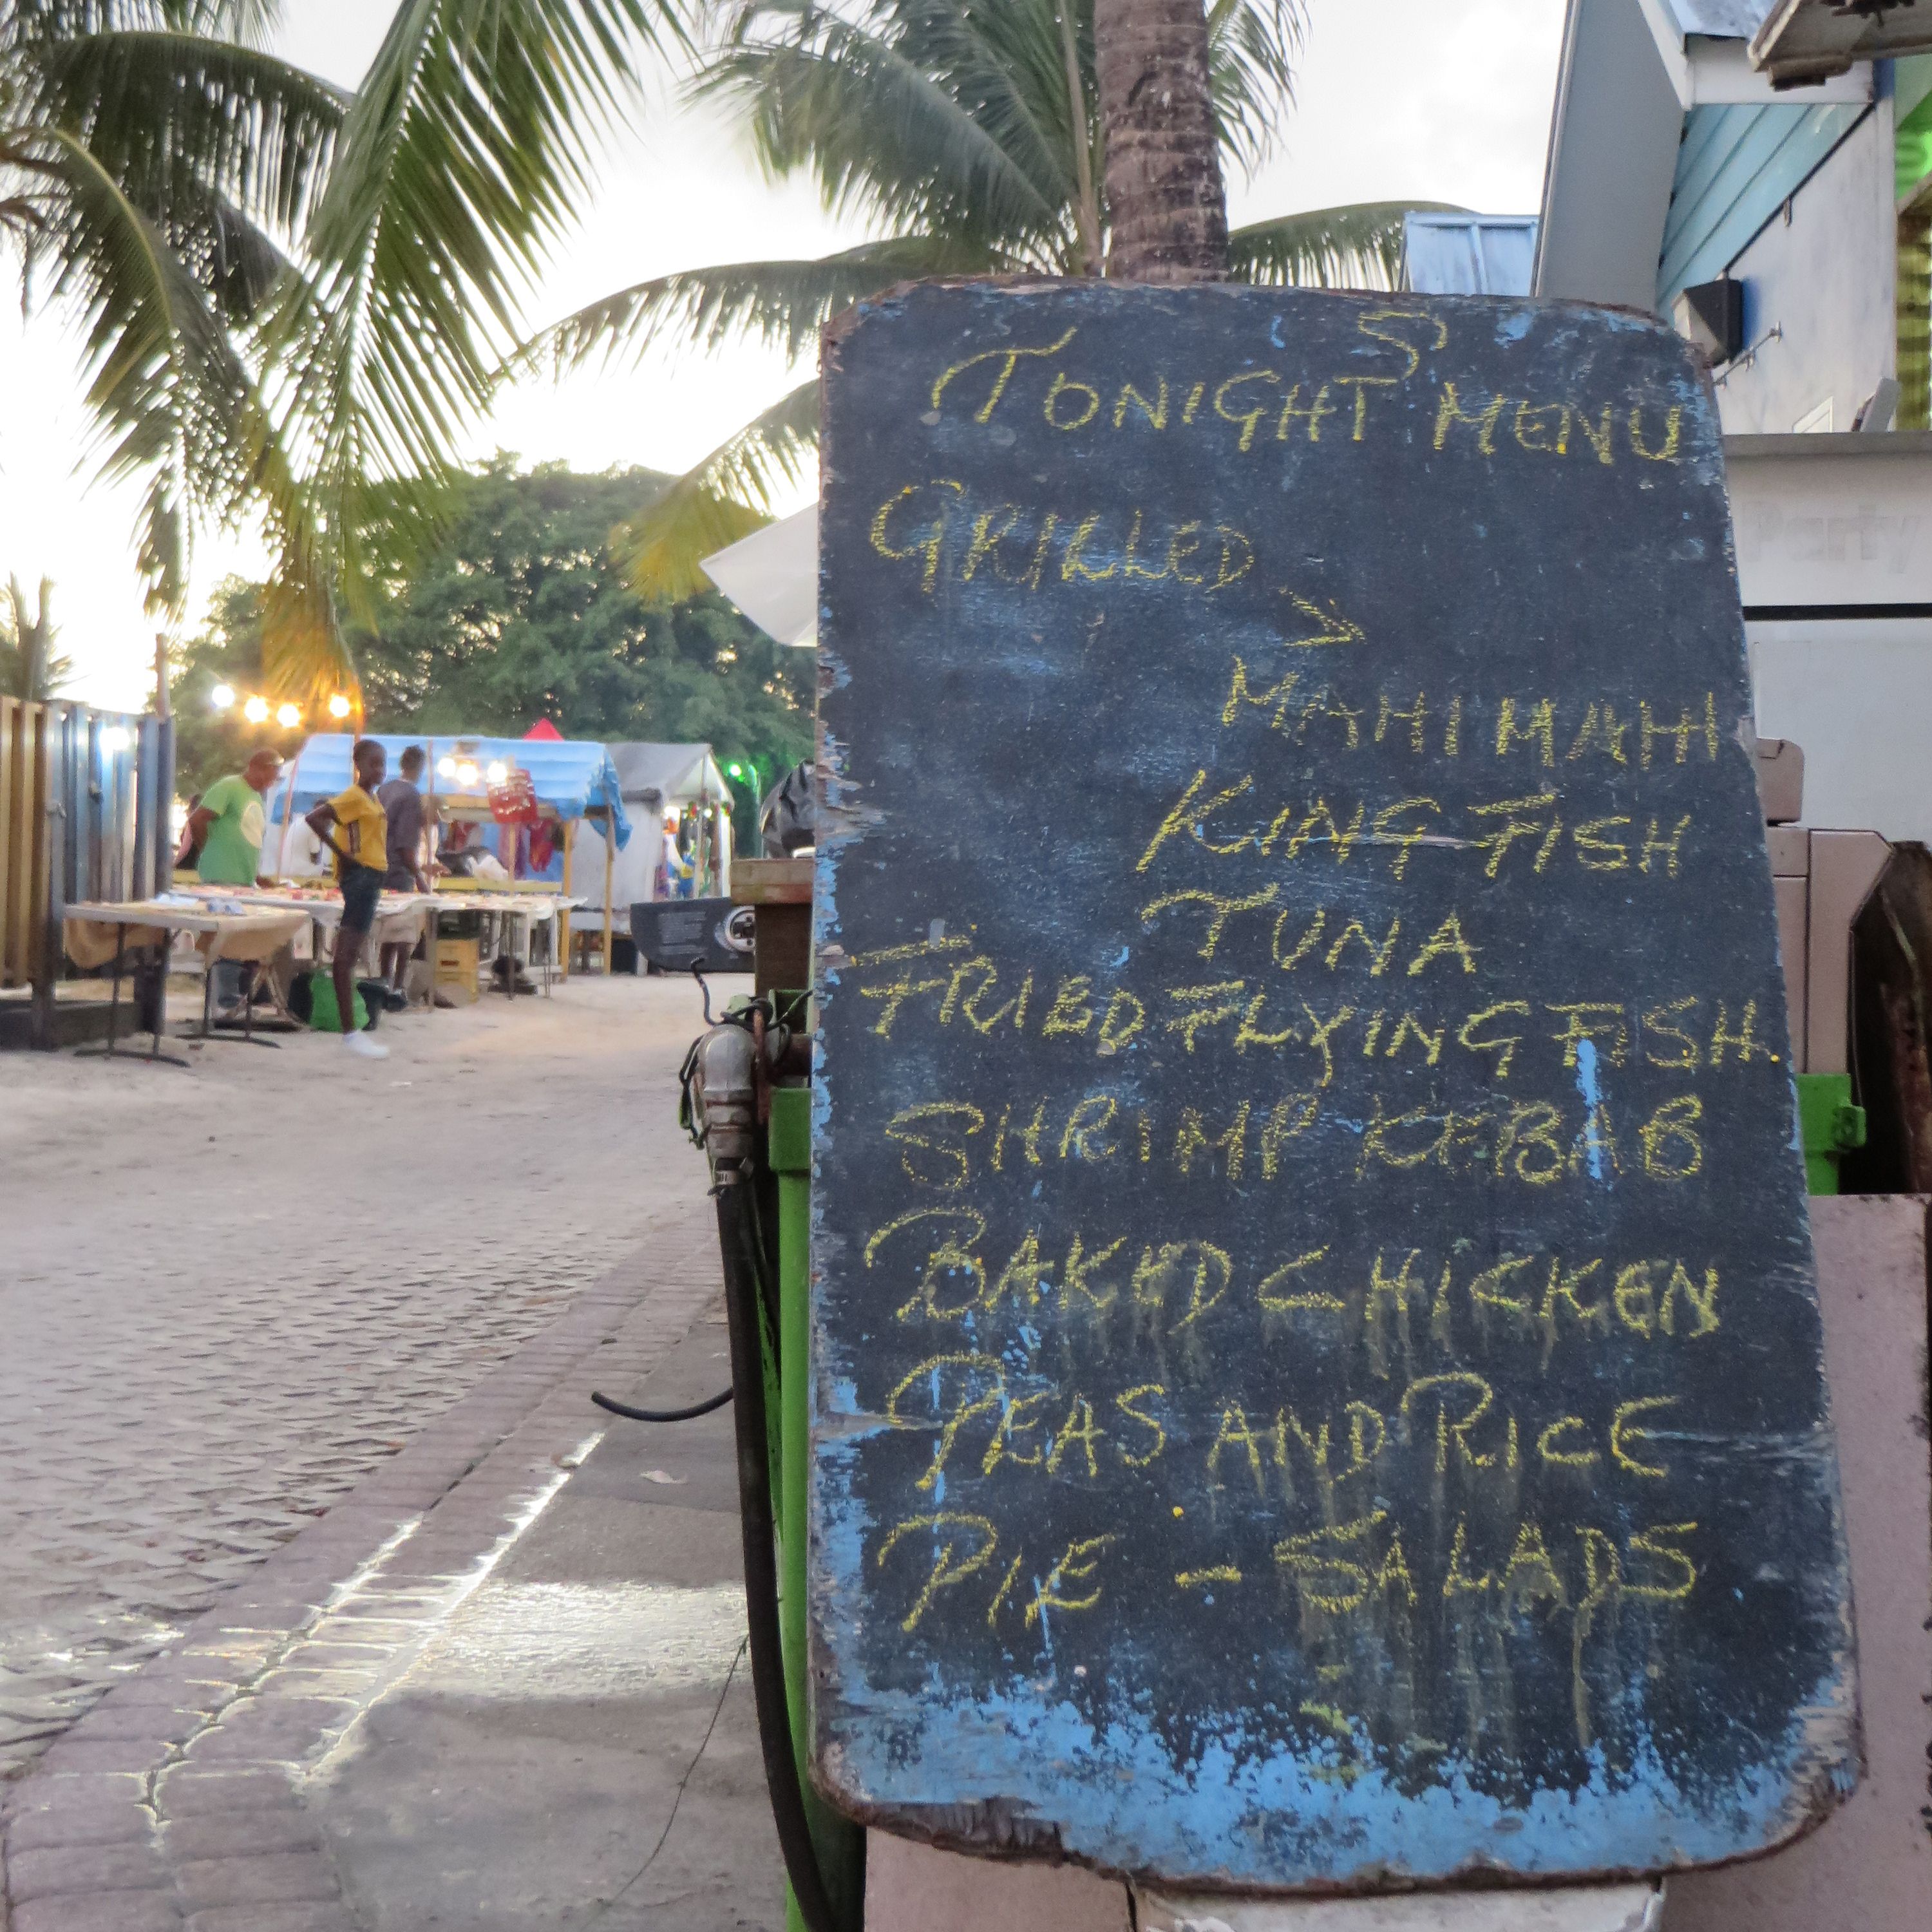 TONIGHTS MENU
GRILLED
MAHI MAHI
KING FISH
TUNA
FRIED FLYING FISH
SHRIMP KEBAB
BAKED CHICKEN
PEAS AND RICE
PIE - SALADS